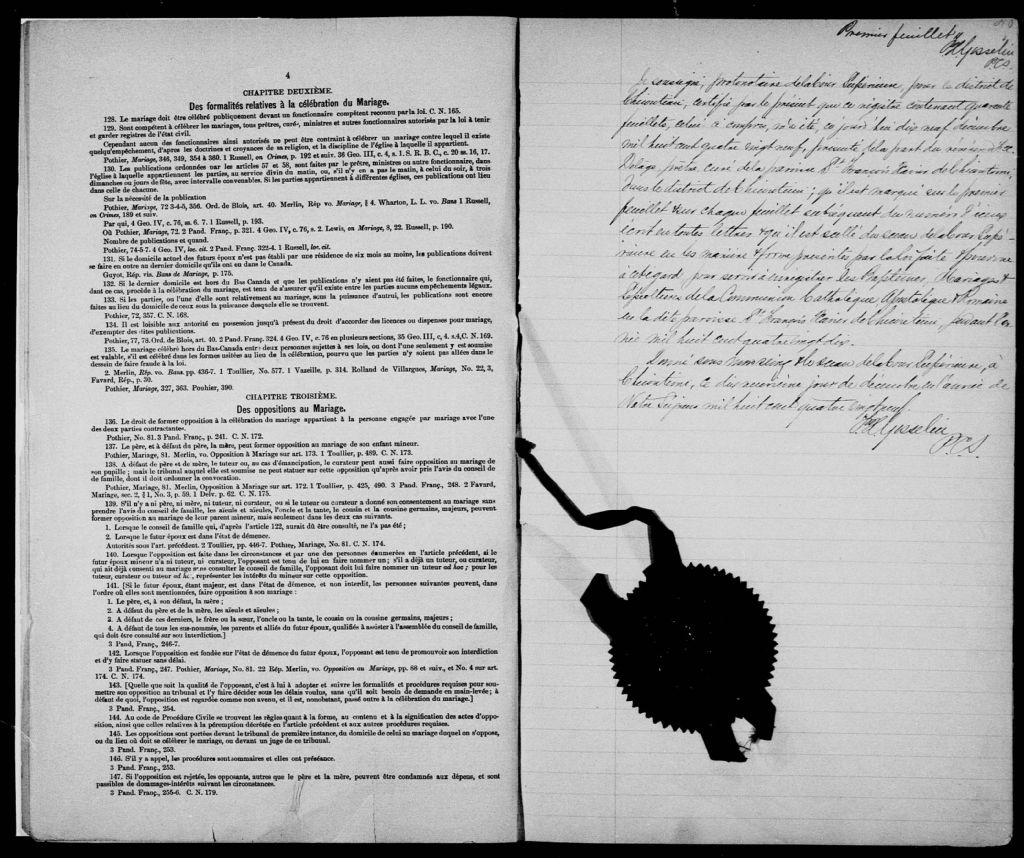 4
CHAPITRE DEUXIÈME.
Des formalités relatives à la célébration du Mariage.
128. Le mariage doit être célébré publiquement devant un fonctionnaire compétent reconnu par la loi. C. N. 165.
129. Sont compétents à célébrer les mariages, tous prêtres, curés, ministres et autres fonctionnaires autorisés par la loi à tenir
et garder registres de l'état civil.
Cependant aucun des fonctionnaires ainsi autorisés ne peut être contraint à célébrer un mariage contre lequel il existe
quelqu'empêchement, d'après les doctrines et croyances de sa religion, et la discipline de l'église à laquelle il appartient.
Pothier, Mariage, 346, 349, 354 à 360. 1 Russell, on Crimes, p. 192 et suiv. 36 Geo. III, c. 4, s. 1. S. R. B. C., c. 20 ss. 16, 17.
130. Les publications ordonnées par les articles 57 et 58, sont faites par le prêtre, ministre ou autre fonctionnaire, dans
l'église à laquelle appartiennent les parties, au service divin du matin, ou, s'il n'y en a pas le matin, à celui du soir, à trois
dimanches ou jours de fête, avec intervalle convenables. Si les parties appartiennent à différentes églises, ces publications ont lieu
dans celle de chacune.
Sur la nécessité de la publication
Pothier, Mariage, 72 3-4-5, 356. Ord. de Blois, art. 40. Merlin, Rép vo. Mariage, § 4. Wharton, L. L. vo. Bans 1 Russell,
on Crimes, 189 et suiv.
Par qui, 4 Geo. IV, c. 76, ss. 6. 7. 1 Russell, p. 193.
Où Pothier, Mariage, 72. 2 Pand. Franç. p. 321. 4 Geo. IV, c. 76, s. 2. Lewis, on Mariage, 8, 22. Russell, p. 190.
Nombre de publications et quand.
Pothier, 74-5-7. 4 Geo. IV, loc. cit. 2 Pand. Franç. 322-4. 1 Russell, loc. cit.
131. Si le domicile actuel des futurs époux n'est pas établi par une résidence de six mois au moins, les publications doivent
se faire en outre au dernier domicile qu'ils ont eu dans le Canada.
Guyot, Rép. vis. Bans de Mariage, p. 175.
132. Si le dernier domicile est hors du Bas Canada et que les publications n'y aient pas été faites, le fonctionnaire qui,
dans ce cas, procède à la célébration du mariage, est tenu de s'assurer qu'il existe entre les parties aucuns empêchements légaux.
133. Si les parties, ou l'une d'elle sont relativement au mariage, sous la puissance d'autrui, les publications sont encore
faites au lieu du domicile de ceux sous la puissance desquels elle se trouvent.
Pothier, 72, 357. C. N. 168.
134. Il est loisible aux autorité en possession jusqu'à présent du droit d'accorder des licences ou dispenses pour mariage,
d'exempter des dites publications.
Pothier, 77, 78. Ord. de Blois, art. 40. 2 Pand. Franç. 324. 4 Geo. IV, c. 76 en plusieurs sections, 35 Geo. III, c. 4. s.4, C. N. 169.
135. Le mariage célébré hors du Bas-Canada entre deux personnes sujettes à ses lois, ou dont l'une seulement y est soumise
est valable, s'il est célébré dans les formes usitées au lieu de la célébration, pourvu que les parties n'y soient pas allées dans le
dessein de faire fraude à la loi.
2. Merlin, Rép. vo. Bans. pp. 436-7. 1 Toullier, No. 577. 1 Vazeille, p. 314. Rolland de Villargues, Mariage, No. 22, 3,
Favard, Rép., p. 50.
Pothier, Mariage, 327, 363. Pouhier, 390.
CHAPITRE TROISIÈME.
Des oppositions au Mariage.
136. Le droit de former opposition à la célébration du mariage appartient à la personne engagée par mariage avec l'une
des deux parties contractantes.
Pothier, No. 81. 3 Pand. Franç., p. 241. C. N. 172.
137. Le père, et à défaut du père, la mère, peut former opposition au mariage de son enfant mineur.
Pothier, Mariage, 81. Merlin, vo. Opposition à Mariage sur art. 173. 1 Toullier, p. 489. C. N. 173.
138. A défaut de père et de mère, le tuteur ou, au cas d'émancipation, le curateur peut aussi faire opposition au mariage de
son pupille ; mais le tribunal auquel elle est soumise ne peut statuer sur cette opposition qu'après avoir pris l'avis du conseil de
de famille, dont il doit ordonner la convocation.
Pothier, Mariage, 81. Merlin, Opposition à Mariage sur art. 172. 1 Toullier, p. 425, 490. 3 Pand. Franç., 248. 2 Favard,
Mariage, sec. 2, § 1, No. 3, p. 59. 1 Delv. p. 62. C. N. 175.
139. S'il n'y a ni père, ni mère, ni tuteur, ni curateur, ou si le tuteur ou curateur a donné son consentement au mariage sans
prendre l'avis du conseil de famille, les aïeuls et aïeules, l'oncle et la tante, le cousin et la cousine germains, majeurs, peuvent
former opposition au mariage de leur parent mineur, mais seulement dans les deux cas suivants.
1. Lorsque le conseil de famille qui, d'après l'article 122, aurait dû être consulté, ne l'a pas été ;
2. Lorsque le futur époux est dans l'état de démence.
Autorités sous l'art. précédent. 2 Toullier, pp. 446-7. Pothier, Mariage, No. 81. C. N. 174.
140. Lorsque l'opposition est faite dans les circonstances et par une des personnes énumérées en l'article précédent, si le
futur époux mineur n'a ni tuteur, ni curateur, l'opposant est tenu de lui en faire nommer un ; s'il a déjà un tuteur, ou curateur,
qui ait déjà consenti au mariage sans consulter le conseil de famille, l'opposant doit lui faire nommer un tuteur ad hoc ; pour les
tuteur, curateur ou tuteur ad hoc, représenter les intérêts du mineur sur cette opposition.
141. [Si le futur époux, étant majeur, est dans l'état de démence, et non interdit, les personnes suivantes peuvent, dans
l'ordre où elles sont mentionnées, faire opposition à son mariage :
1. Le père, et, à son défaut, la mère ;
2. A défaut du père et de la mère, les aïeuls et aïeules ;
3. A défaut de ces derniers, le frère ou la sœur, l'oncle ou la tante, le cousin ou la cousine germains, majeurs ;
4. A défaut de tous les sus-nommés, les parents et alliés du futur époux, qualifiés à assister à l'assemblée du conseil de famille,
qui doit être consulté sur son interdiction.]
3 Pand. Franç., 246-7.
142. Lorsque l'opposition est fondée sur l'état de démence du futur époux, l'opposant est tenu de promouvoir son interdiction
et d'y faire statuer sans délai.
3 Pand. Franç., 247. Pothier, Mariage, No. 81. 22 Rép. Merlin, vo. Opposition au Mariage, pp. 88 et suiv., et No. 4 sur art.
174. C. N. 174.
143. [Quelle que soit la qualité de l'opposant, c'est à lui à adopter et suivre les formalités et procédures requises pour sou-
mettre son opposition au tribunal et l'y faire décider sous les délais voulus, sans qu'il soit besoin de demande en main-levée ; à
défaut de quoi, l'opposition est regardée comme non avenu, et il est, nonobstant, passé outre à la célébration du mariage.]
3 Pand. Franç., 254.
144. Au code de Procédure Civile se trouvent les règles quant à la forme, au contenu et à la signification des actes d'oppo-
sition, ainsi que celles relatives à la péremption décrétée en l'article précédent et aux autres procédures requises.
145. Les oppositions sont portées devant le tribunal de première instance, du domicile de celui au mariage duquel on s'oppose,
ou du lieu où doit se célébrer le mariage, ou devant un juge de ce tribunal.
3 Pand. Franç., 253.
146. S'il y a appel, les procédures sont sommaires et elles ont préséance.
3 Pand. Franç., 253.
147. Si l'opposition est rejetée, les opposants, autres que le père et la mère, peuvent être condamnés aux dépens, et sont
passibles de dommages-intérêts suivant les circonstances.
3 Pand. Franç., 255-6. C. N. 179.
Premier feuillet
Gosselin
P.C.S.
Je soussigné, protonotaire de la Cour Supérieure, pour le district de
Chicoutimi, certifie par le présent que ce registre contenant quarante
feuillets, celui-ci compris, a été, ce jourd'hui dix neuf décembre
mil huit cent quatre vingt neuf, présenté, de la part du révérend
Delâge prêtre, curé de la paroisse St François Xavier de Chicoutimi,
dans le district de Chicoutimi ; qu'il est marqué sur le premier
feuillet & sur chaque feuillet subséquent du numéro d'iceux
écrit en toutes lettres & qu'il est scellé du sceau de la Cour Supé-
rieure en la manière & forme prescrites par la Loi faite & pourvue
à cet égard, pour servir à enregistrer les Baptêmes, Mariages &
Sépultures de la Communion Catholique Apostolique & Romaine
en la dite paroisse St François Xavier de Chicoutimi, pendant l'an-
née mil huit cent quatre vingt dix.
Donné sous mon seing & le sceau de la Cour Supérieure, à
Chicoutimi, ce dix neuvième jour de décembre en l'année de
Notre Seigneur mil huit cent quatre vingt neuf.
Gosselin
P.C.S.